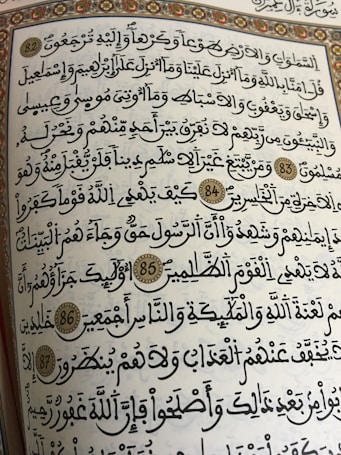 سورة ءال عمران
السموات والارض طوعا وكرها وإليه ترجعون 82
قل ـامنا بالله وما أنزل علينا وما أنزل على إبراهيم وإسمعيل
وإسحق ويعقوب والاسباط وما أوتي موسى وعيسى
والنبيـون من ربهم لا نفرق بين أحد منهم ونحن له
مسلمون 83 ومن يبتغ غير الاسلم دينا فلن يقبل منه وهو
الاخرة من الخسرين 84 كيف يهدي الله قوما كفروا
إيمنهم وشهدوا أن الرسول حق وجاءهم البينت
لا يهدي القوم الظلمين 85 أولئك جزاؤهم أن
لعنة الله والملئكة والناس أجمعين 86 خلدين
لا يخفف عنهم العذاب ولا هم ينظرون 87 إلا
تابوا من بعد ذلك وأصلحوا فإن الله غفور رحيم